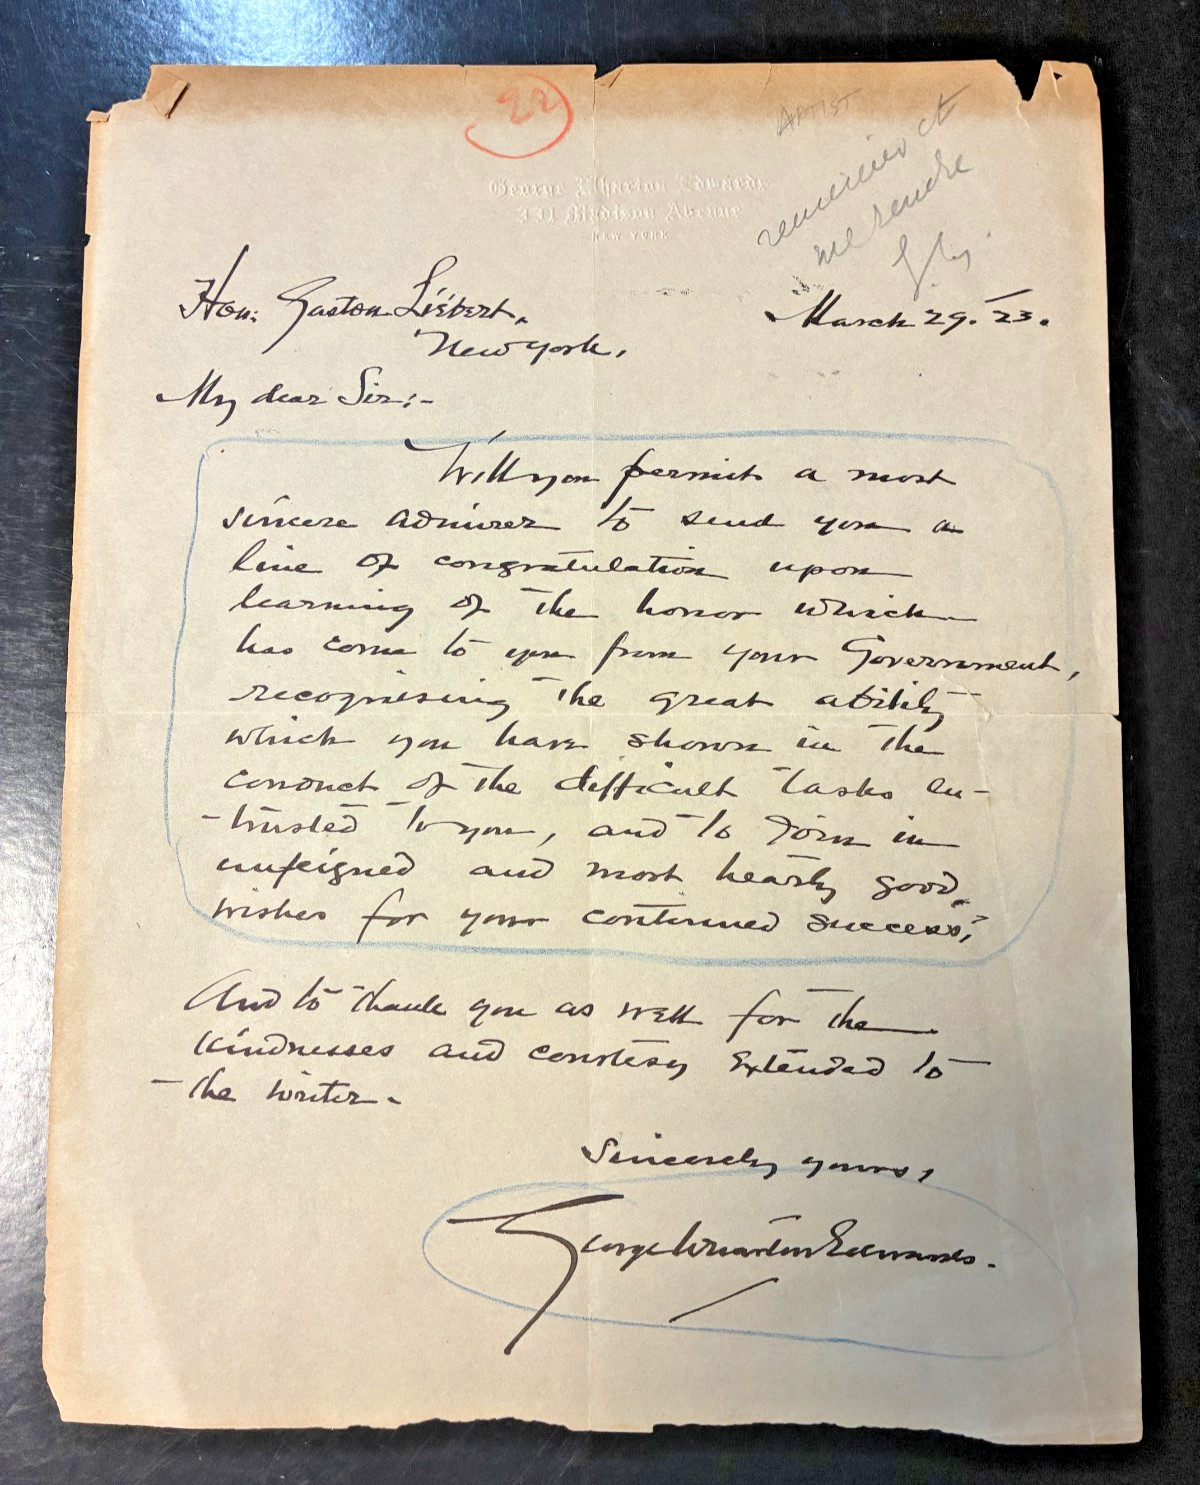 22
ARTIST
remercier et
me rendre
George Wharton Edwards
331 Madison Avenue
NEW YORK
Hon: Gaston Liébert,
New York,
March 29. 23.
My dear Sir:-
Will you permit a most
sincere admirer to send you a
line of congratulation upon
learning of the honor which
has come to you from your Government,
recognising the great ability
which you have shown in the
conduct of the difficult tasks en-
trusted to you, and to join in
unfeigned and most hearty good
wishes for your continued success;
And to thank you as well for the
kindnesses and courtesy extended to
the writer.
Sincerely yours,
George Wharton Edwards.